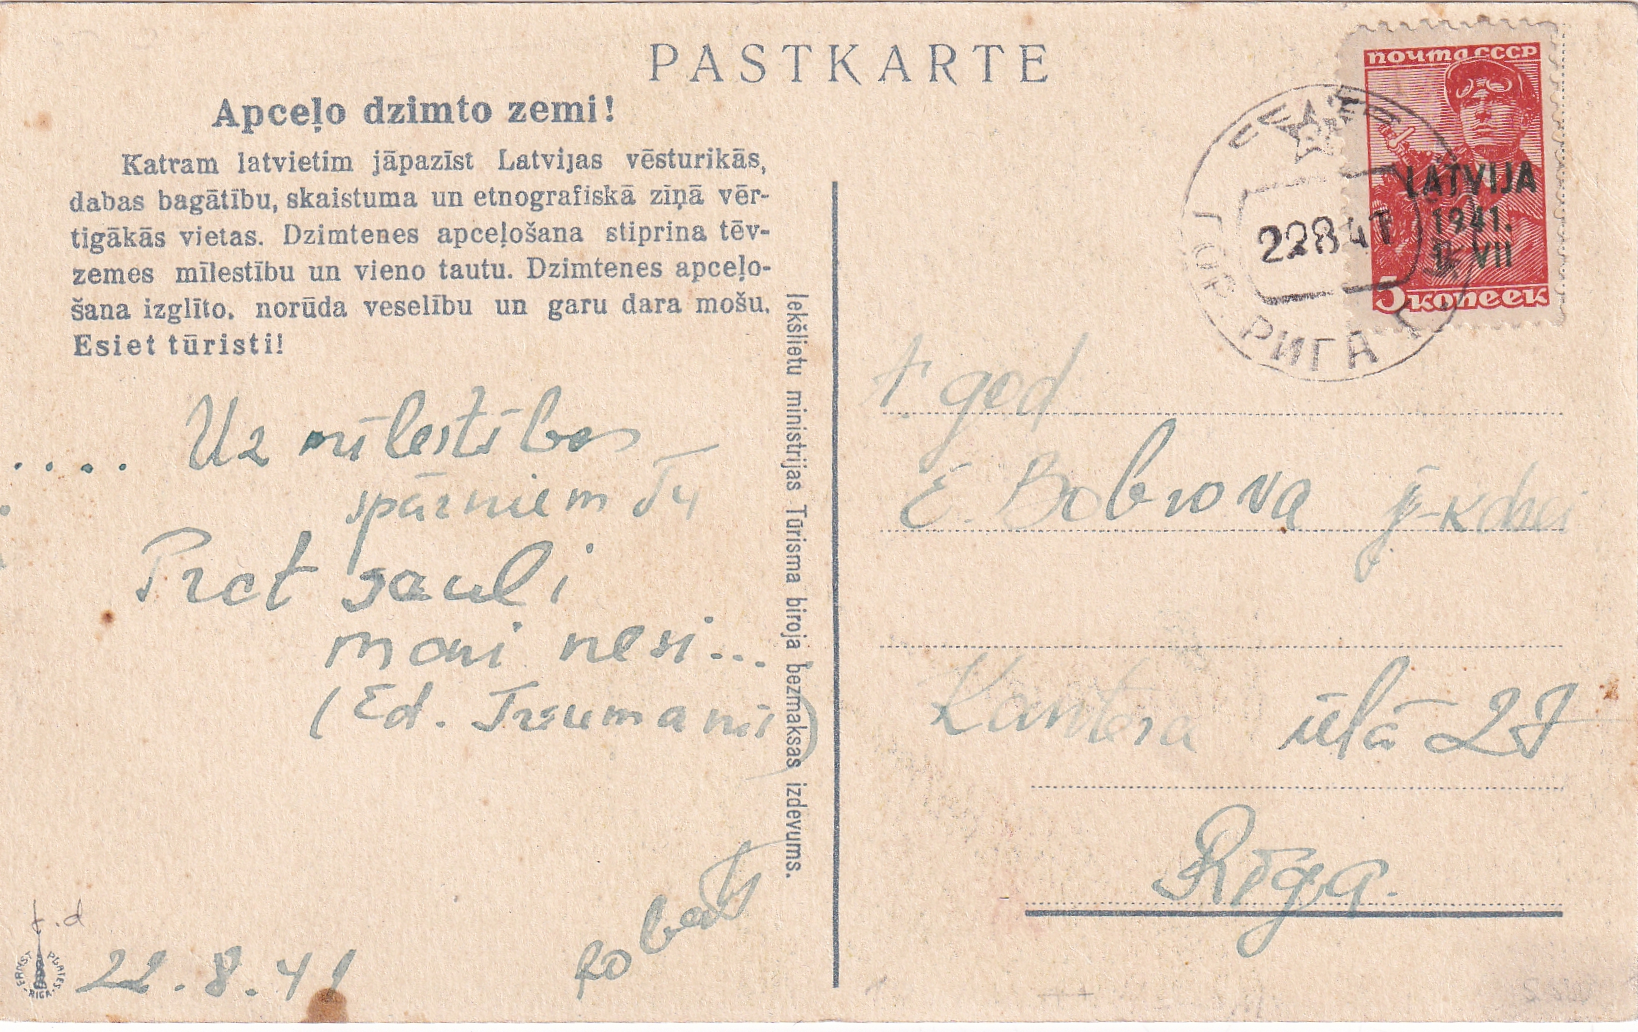 PASTKARTE
Apceļo dzimto zemi!
Katram latvietim jāpazīst Latvijas vēsturikās,
dabas bagātību, skaistuma un etnografiskā ziņā vēr-
tīgākās vietas. Dzimtenes apceļošana stiprina tēv-
zemes mīlestību un vieno tautu. Dzimtenes apceļo-
šana izglīto, norūda veselību un garu dara mošu.
Esiet tūristi!
.... Uz mīlestības
spārniem Tu
Pret sauli
mani nesi...
(Ed. Treumanis)
Roberts
22.8.41
t.d
ERNST PLATES
RIGA
Iekšlietu ministrijas Tūrisma biroja bezmaksas izdevums.
ПОЧТА СССР
LATVIJA
1941.
1. VII
5 КОПЕЕК
22841
ГОР. РИГА
god
E. Bobrova j-kdzei
Kantora ielā 27
Rīga.